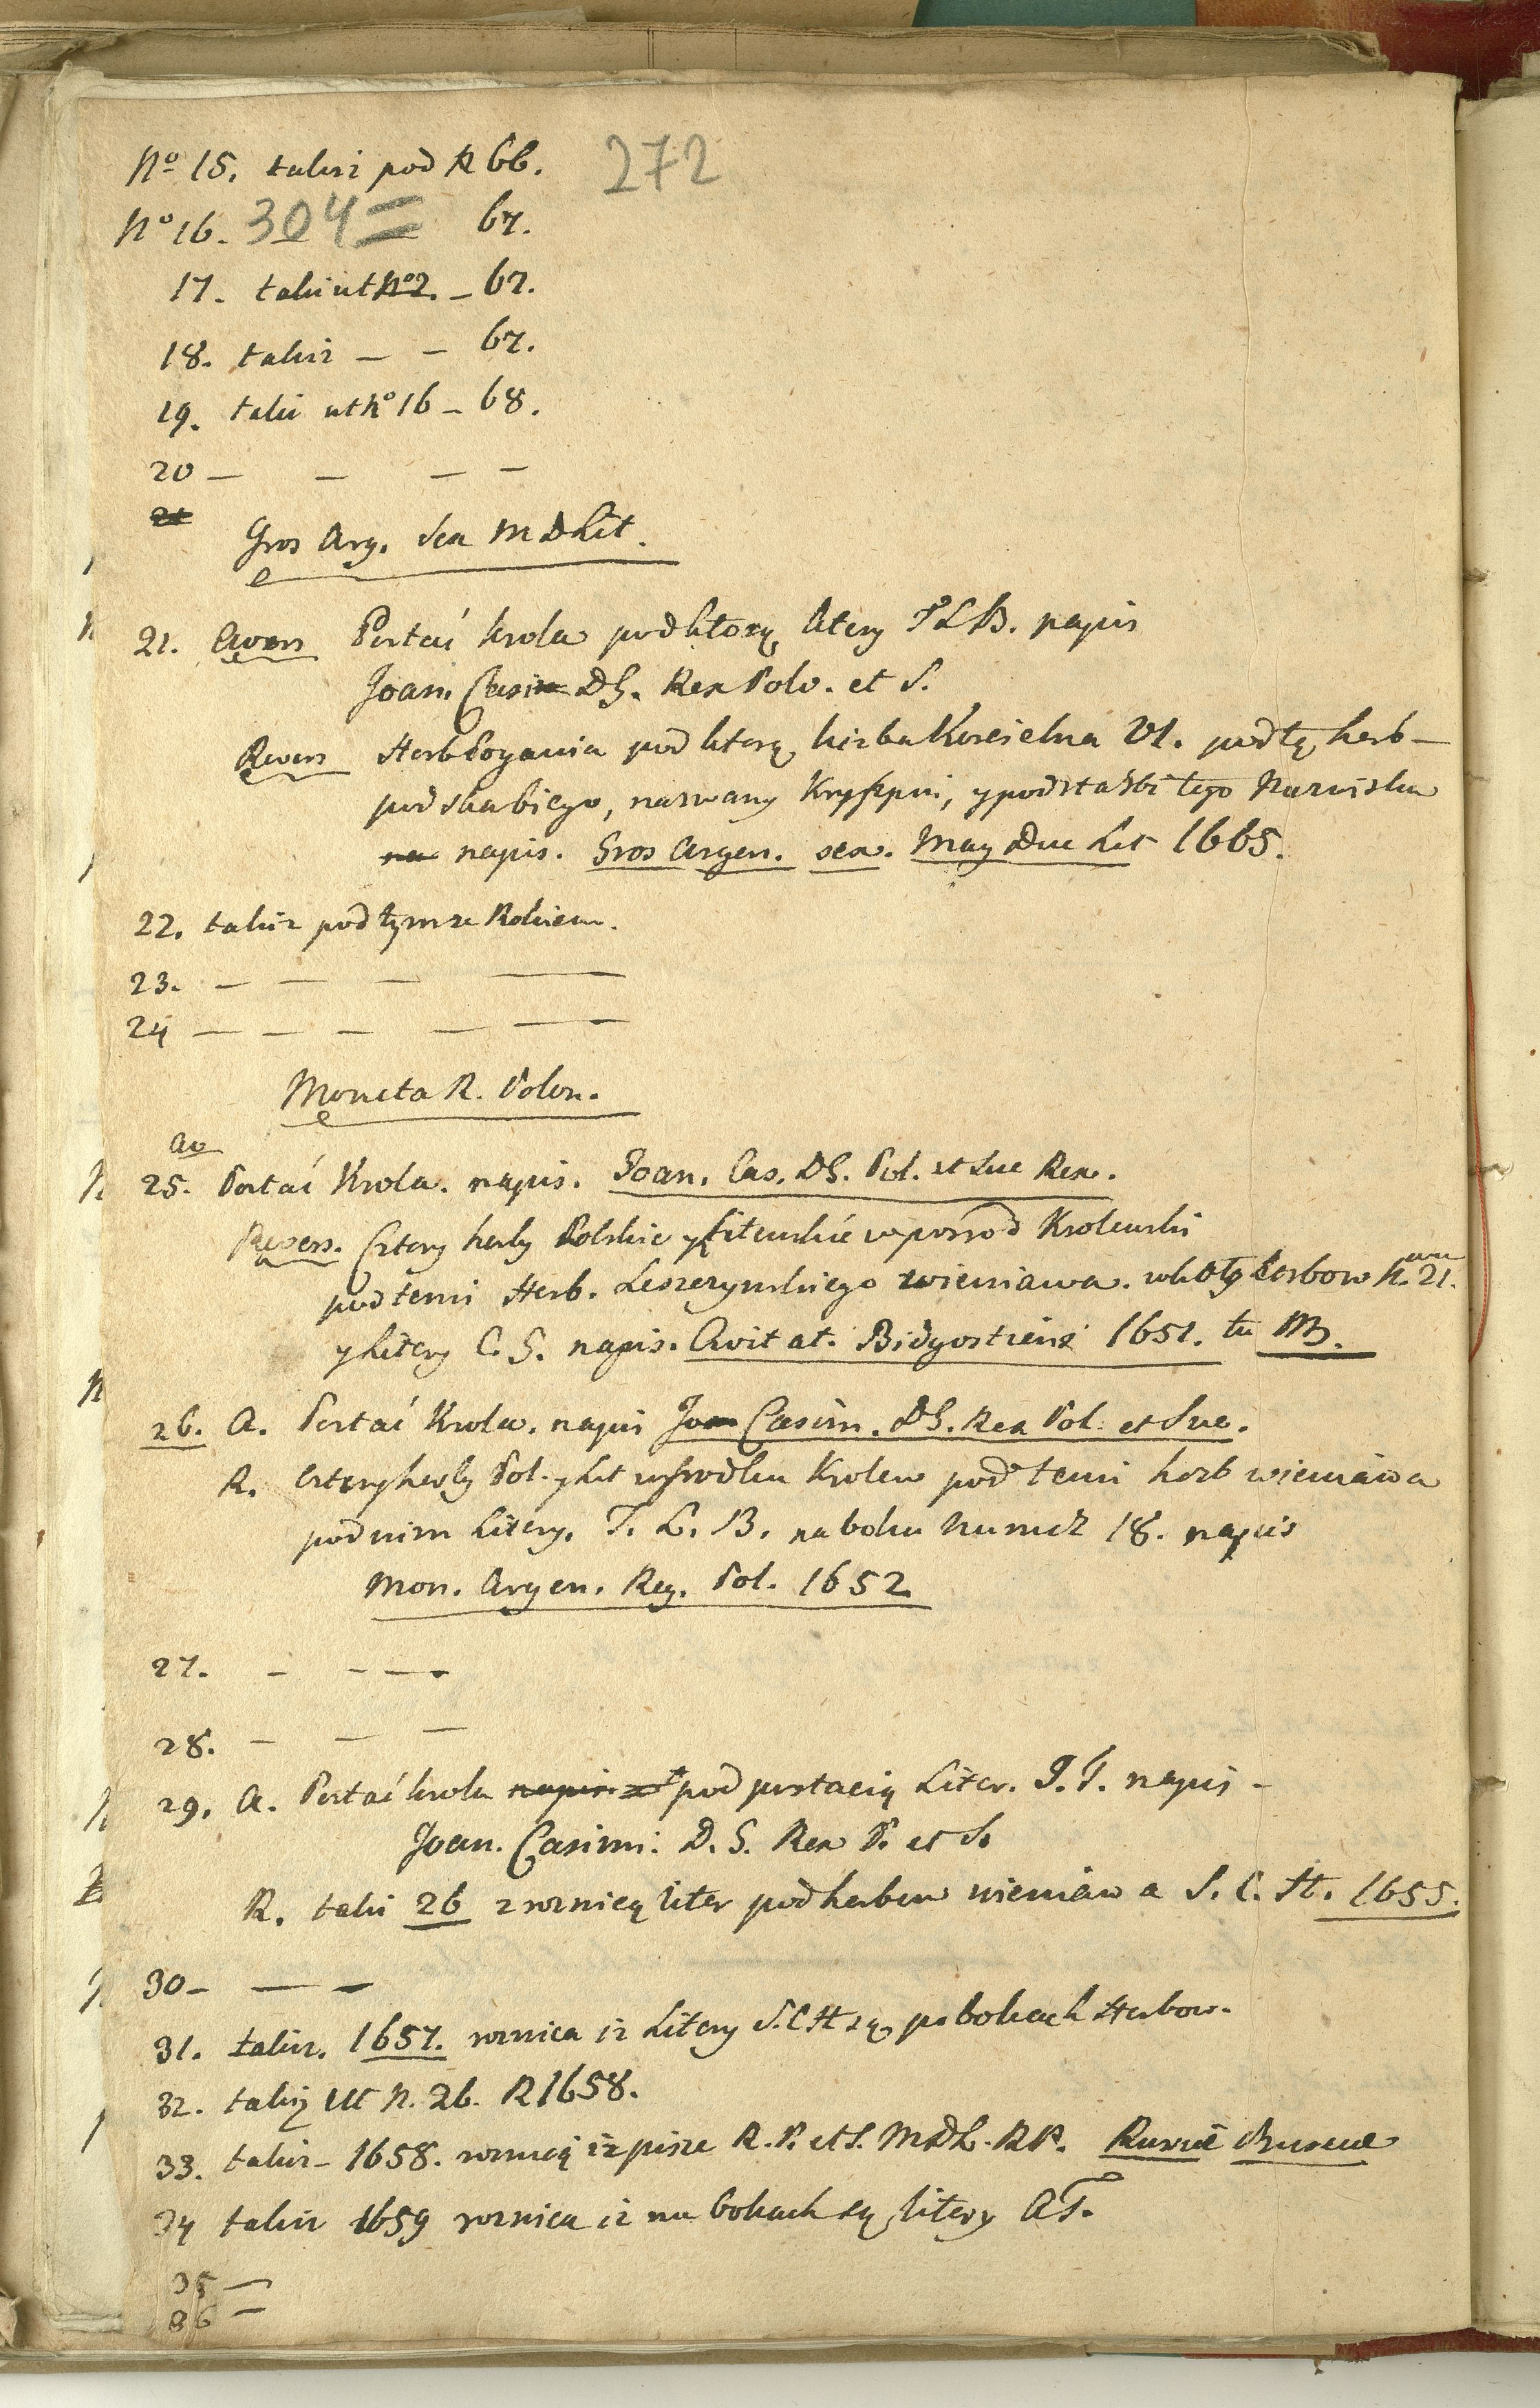 No 15. takiż pod R 66. 272
No 16. 304 = 67.
17. taki ut No 2. – 67.
18. takiż – – 67.
19. taki ut No 16 – 68.
20 – – – –
21
Gros Arg. Sex M D Lit.
21. Avers Postać krola pod ktorą litery T L B. napis
Joan. Casim DG. Rex Polo. et S.
Revers Herb Pogonia pod ktorą liczba Koscielna VI. pod tą herb –
podskarbiego, nazwany Kryszpin, y podskarbi tego Nazwiska
na napis. Gros Argen. sex. Mag Duc Lit 1665.
22. takiż pod tymze Rokiem.
23. – – – –
24 – – – – –
Moneta R. Polon.
av
25. Postać Krola. napis. Joan. Cas. DG. Pol. et Sue Rex.
Revers. Cztery herby Polskie y Litewskie w posrod Krolewski
pod temi Herb. Leszczynskiego wieniawa. herbow N. 21.
y Litery C. G. napis. Civitat. Bidgostiens 1651. tu
26. A. Postać Krola. napis Joan Casim. DG. Rex Pol. et Sue.
R. cztery herby Pol. y Lit w srodku Krolew pod temi herb wieniawa
pod nim Litery. T. L. B. na boku numer 18. napis
Mon. Argen. Reg. Pol. 1652
27. – – – .
28. – – –
29. A. Postać krola napis pod postacią Liter. I. T. napis –
Joan. Casimi: D. G. Rex P. et S.
R. taki 26 z roznicą liter pod herbem wieniawa S. C. H. 1655.
30 – – –
31. takiż. 1657. roznica iż Litery S. C H są po bokach Herbow.
32. takiż ut N. 26. R 1658.
33. takiż – 1658. roznicą iż pisze R. P. et S. M D L. R P.
34 takiż 1659 roznica iż na bokach są litery A T.
35 –
36 –